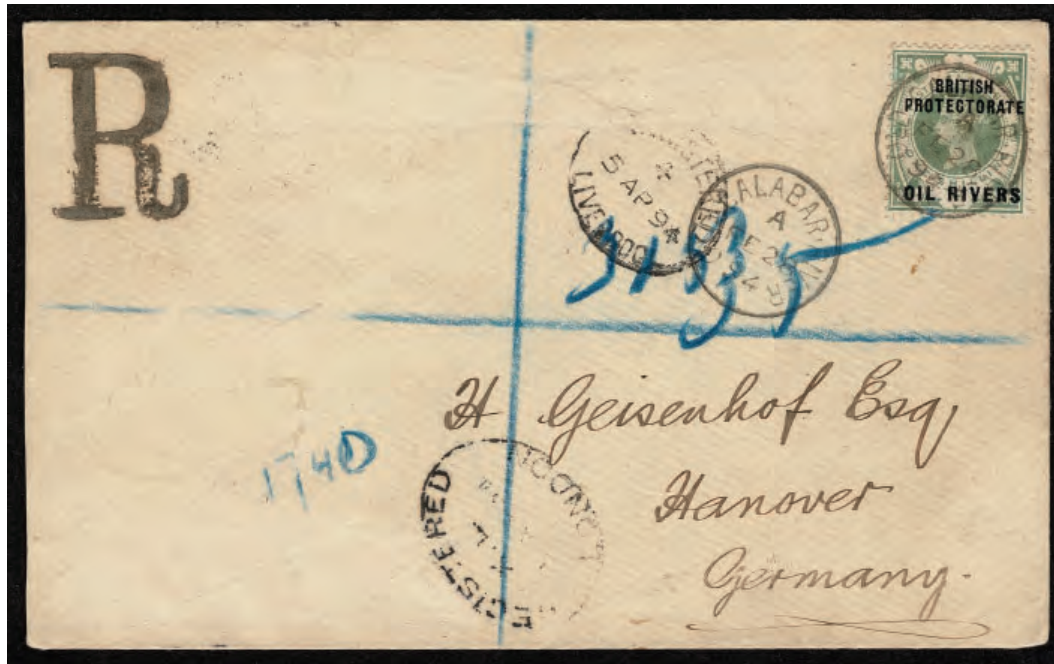 R
BRITISH
PROTECTORATE
OIL RIVERS
5 AP 94
LIVERPOOL
CALABAR
A
H Geisenhof Esq,
Hanover
Germany.
REGISTERED
LONDON